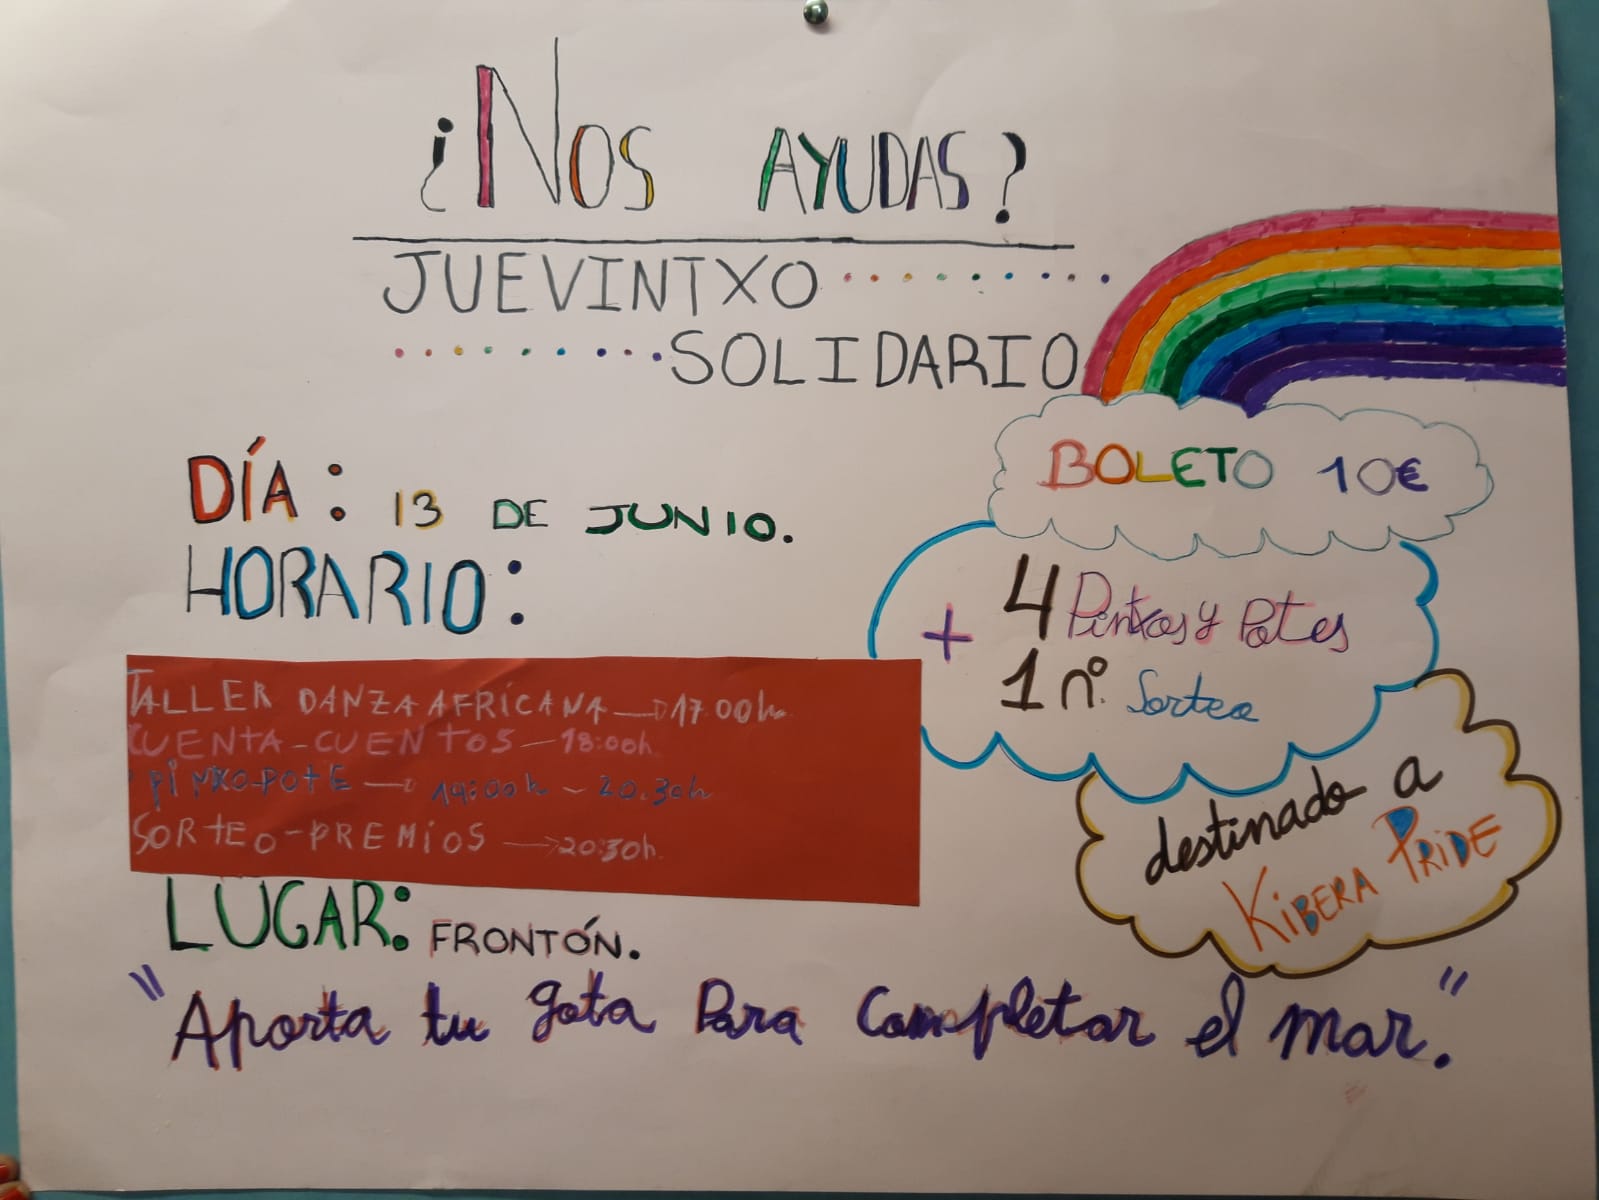 ¿NOS AYUDAS?
JUEVINTXO
SOLIDARIO
DÍA: 13 DE JUNIO.
HORARIO:
TALLER DANZA AFRÍCANA → 17:00h
CUENTA-CUENTOS — 18:00h.
PINTXO-POTE → 19:00h - 20:30h
SORTEO-PREMIOS → 20:30h.
LUGAR: FRONTÓN.
BOLETO 10€
+ 4 Pintxos y Potes
1 nº. Sorteo
destinado a
KIBERA PRIDE
"Aporta tu gota Para Completar el mar."